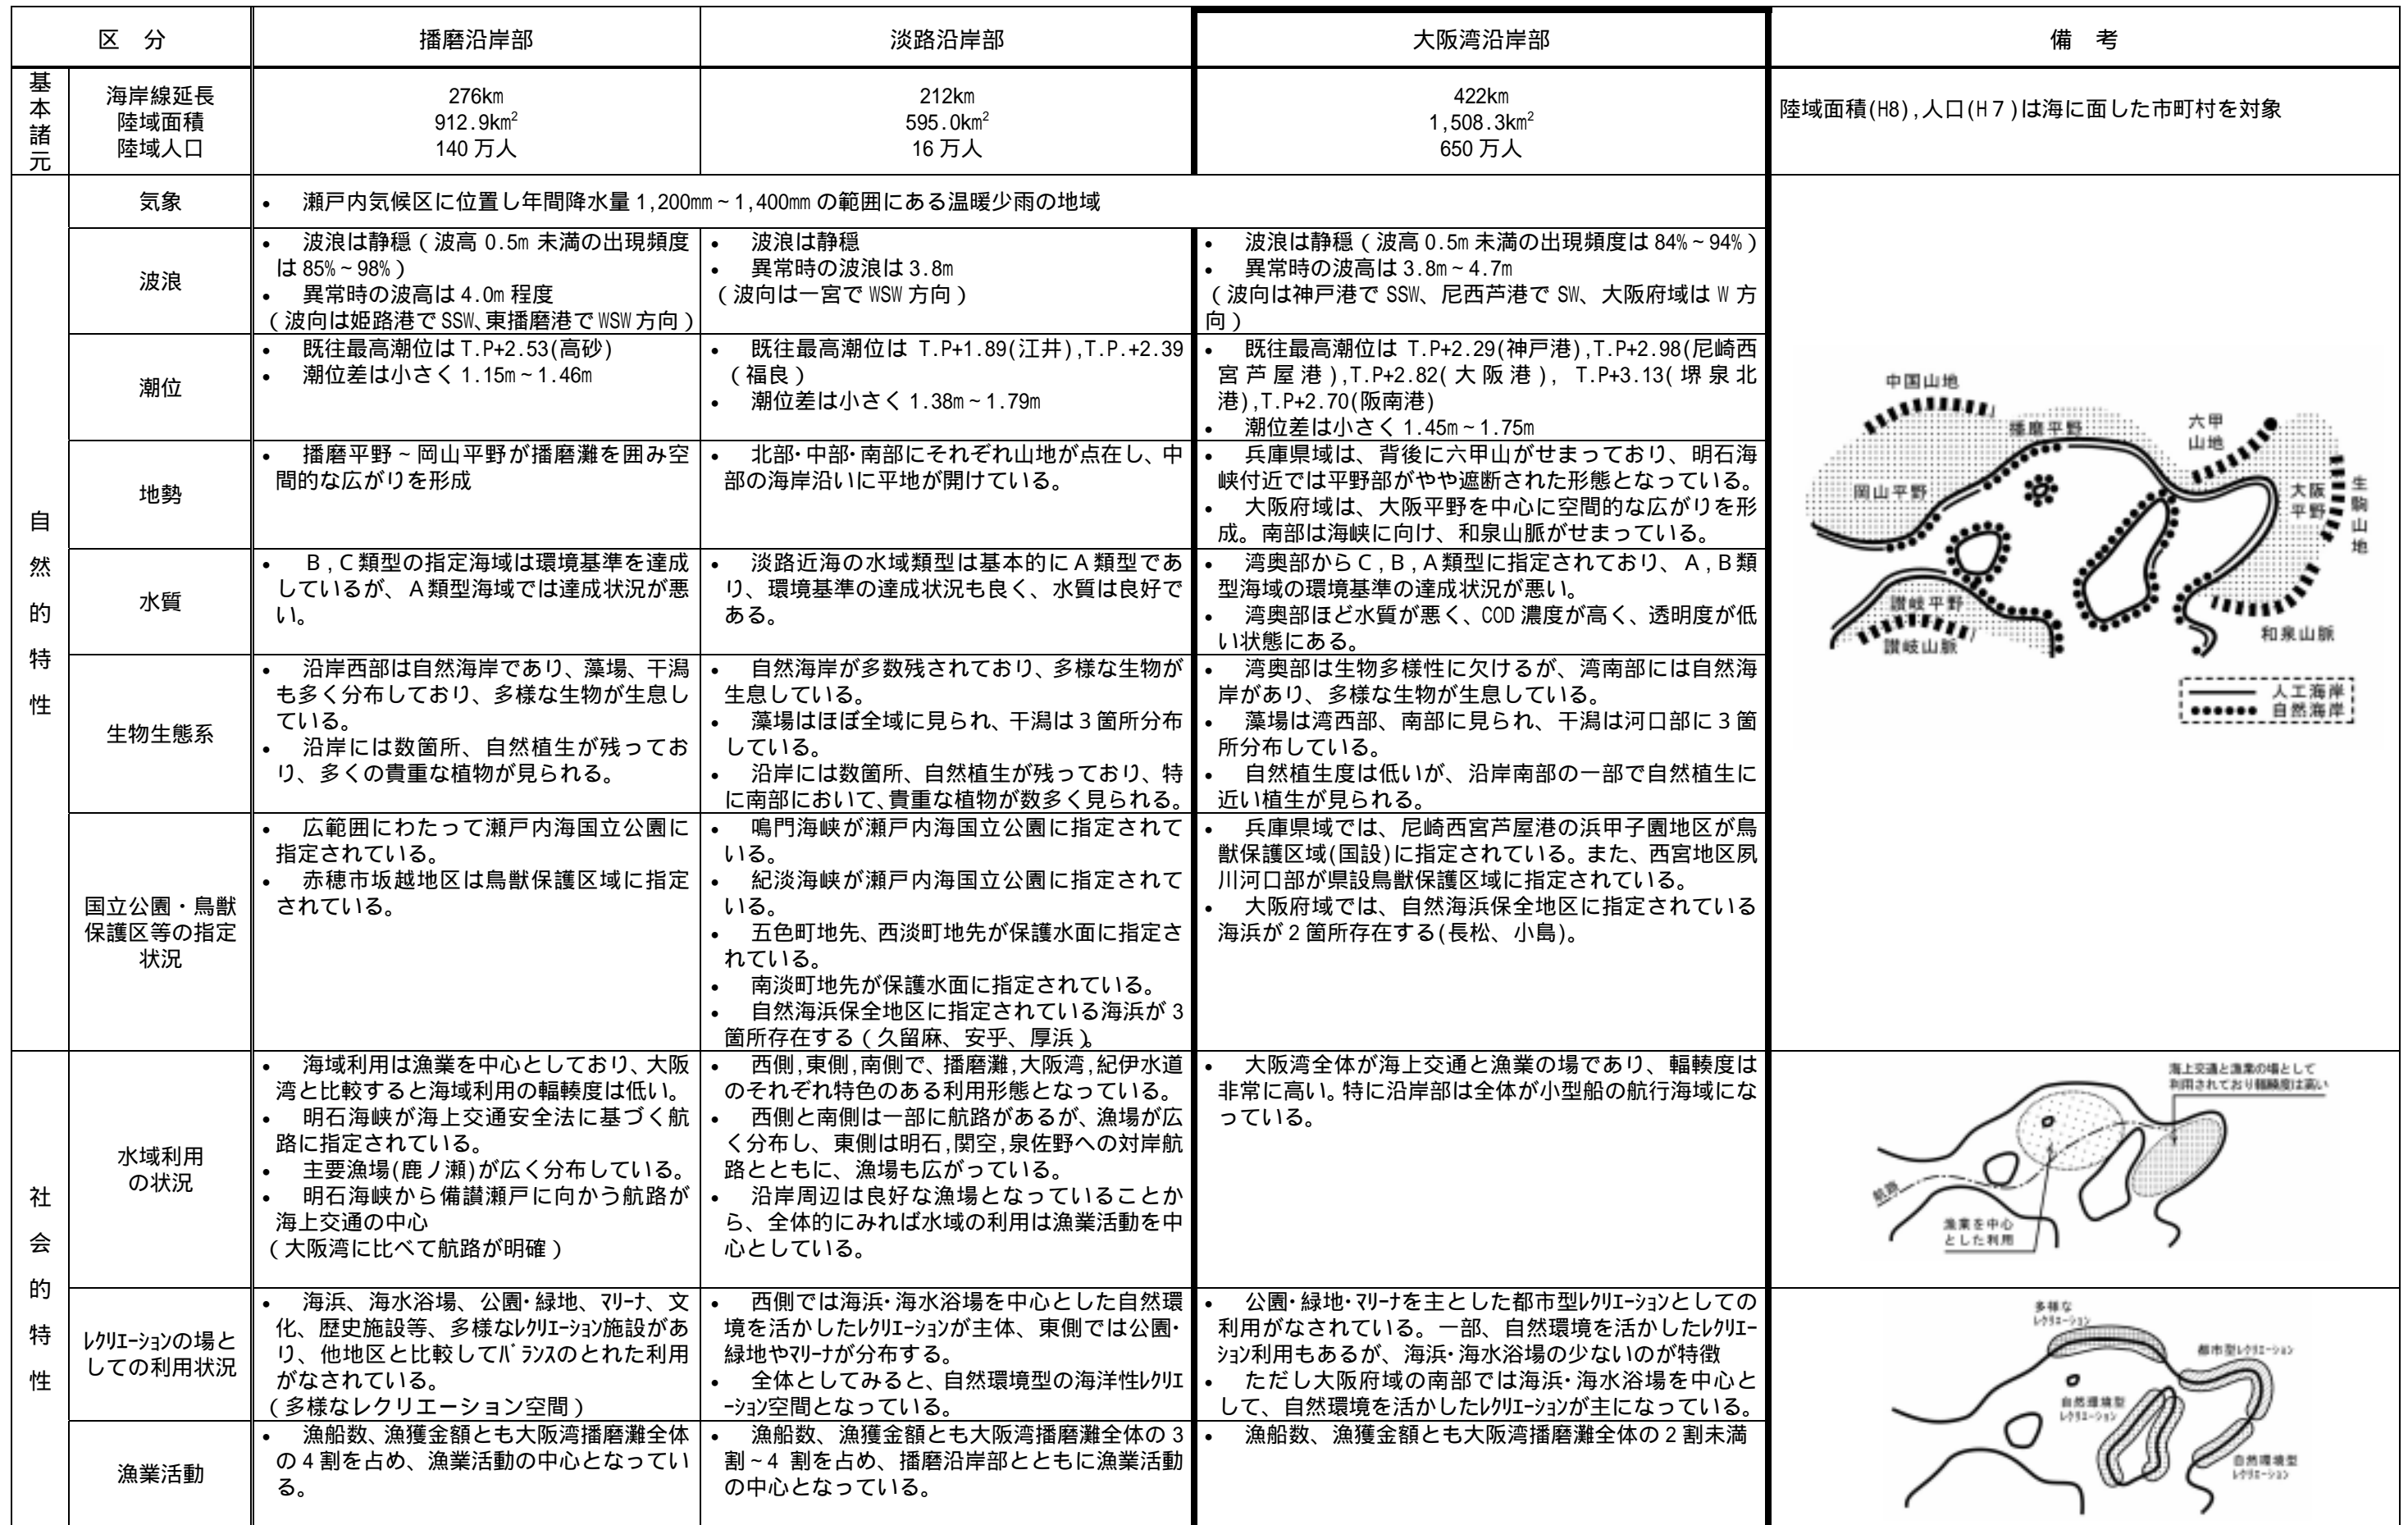 区 分
播磨沿岸部
淡路沿岸部
大阪湾沿岸部
備 考
基本諸元
海岸線延長
陸域面積
陸域人口
276km
912.9km²
140万人
212km
595.0km²
16万人
422km
1,508.3km²
650万人
陸域面積(H8),人口(H７)は海に面した市町村を対象
自然的特性
気象
• 瀬戸内気候区に位置し年間降水量1,200mm~1,400mmの範囲にある温暖少雨の地域
波浪
• 波浪は静穏(波高 0.5m 未満の出現頻度
は85%~98%)
• 異常時の波高は4.0m程度
(波向は姫路港でSSW、東播磨港でWSW方向)
• 波浪は静穏
• 異常時の波浪は3.8m
(波向は一宮でWSW方向)
• 波浪は静穏(波高0.5m未満の出現頻度は84%~94%)
• 異常時の波高は3.8m~4.7m
(波向は神戸港でSSW、尼西芦港でSW、大阪府域はW方
向)
潮位
• 既往最高潮位はT.P+2.53(高砂)
• 潮位差は小さく1.15m~1.46m
• 既往最高潮位は T.P+1.89(江井),T.P.+2.39
(福良)
• 潮位差は小さく1.38m~1.79m
• 既往最高潮位は T.P+2.29(神戸港),T.P+2.98(尼崎西
宮芦屋港),T.P+2.82(大阪港), T.P+3.13(堺泉北
港),T.P+2.70(阪南港)
• 潮位差は小さく1.45m~1.75m
地勢
• 播磨平野~岡山平野が播磨灘を囲み空
間的な広がりを形成
• 北部・中部・南部にそれぞれ山地が点在し、中
部の海岸沿いに平地が開けている。
• 兵庫県域は、背後に六甲山がせまっており、明石海
峡付近では平野部がやや遮断された形態となっている。
• 大阪府域は、大阪平野を中心に空間的な広がりを形
成。南部は海峡に向け、和泉山脈がせまっている。
水質
• Ｂ,Ｃ類型の指定海域は環境基準を達成
しているが、Ａ類型海域では達成状況が悪
い。
• 淡路近海の水域類型は基本的にＡ類型であ
り、環境基準の達成状況も良く、水質は良好で
ある。
• 湾奥部からＣ,Ｂ,Ａ類型に指定されており、Ａ,Ｂ類
型海域の環境基準の達成状況が悪い。
• 湾奥部ほど水質が悪く、COD濃度が高く、透明度が低
い状態にある。
生物生態系
• 沿岸西部は自然海岸であり、藻場、干潟
も多く分布しており、多様な生物が生息し
ている。
• 沿岸には数箇所、自然植生が残ってお
り、多くの貴重な植物が見られる。
• 自然海岸が多数残されており、多様な生物が
生息している。
• 藻場はほぼ全域に見られ、干潟は３箇所分布
している。
• 沿岸には数箇所、自然植生が残っており、特
に南部において、貴重な植物が数多く見られる。
• 湾奥部は生物多様性に欠けるが、湾南部には自然海
岸があり、多様な生物が生息している。
• 藻場は湾西部、南部に見られ、干潟は河口部に３箇
所分布している。
• 自然植生度は低いが、沿岸南部の一部で自然植生に
近い植生が見られる。
国立公園・鳥獣
保護区等の指定
状況
• 広範囲にわたって瀬戸内海国立公園に
指定されている。
• 赤穂市坂越地区は鳥獣保護区域に指定
されている。
• 鳴門海峡が瀬戸内海国立公園に指定されて
いる。
• 紀淡海峡が瀬戸内海国立公園に指定されて
いる。
• 五色町地先、西淡町地先が保護水面に指定さ
れている。
• 南淡町地先が保護水面に指定されている。
• 自然海浜保全地区に指定されている海浜が3
箇所存在する(久留麻、安乎、厚浜)。
• 兵庫県域では、尼崎西宮芦屋港の浜甲子園地区が鳥
獣保護区域(国設)に指定されている。また、西宮地区夙
川河口部が県設鳥獣保護区域に指定されている。
• 大阪府域では、自然海浜保全地区に指定されている
海浜が２箇所存在する(長松、小島)。
中国山地
播磨平野
六甲
山地
岡山平野
大阪
平野
生駒山地
讃岐平野
讃岐山脈
和泉山脈
人工海岸
自然海岸
社会的特性
水域利用
の状況
• 海域利用は漁業を中心としており、大阪
湾と比較すると海域利用の輻輳度は低い。
• 明石海峡が海上交通安全法に基づく航
路に指定されている。
• 主要漁場(鹿ノ瀬)が広く分布している。
• 明石海峡から備讃瀬戸に向かう航路が
海上交通の中心
(大阪湾に比べて航路が明確)
• 西側,東側,南側で、播磨灘,大阪湾,紀伊水道
のそれぞれ特色のある利用形態となっている。
• 西側と南側は一部に航路があるが、漁場が広
く分布し、東側は明石,関空,泉佐野への対岸航
路とともに、漁場も広がっている。
• 沿岸周辺は良好な漁場となっていることか
ら、全体的にみれば水域の利用は漁業活動を中
心としている。
• 大阪湾全体が海上交通と漁業の場であり、輻輳度は
非常に高い。特に沿岸部は全体が小型船の航行海域にな
っている。
海上交通と漁業の場として
利用されており輻輳度は高い
航路
漁業を中心
とした利用
ﾚｸﾘｴｰｼｮﾝの場と
しての利用状況
• 海浜、海水浴場、公園・緑地、ﾏﾘｰﾅ、文
化、歴史施設等、多様なﾚｸﾘｴｰｼｮﾝ施設があ
り、他地区と比較してﾊﾞﾗﾝｽのとれた利用
がなされている。
(多様なレクリエーション空間)
• 西側では海浜・海水浴場を中心とした自然環
境を活かしたﾚｸﾘｴｰｼｮﾝが主体、東側では公園・
緑地やﾏﾘｰﾅが分布する。
• 全体としてみると、自然環境型の海洋性ﾚｸﾘｴ
ｰｼｮﾝ空間となっている。
• 公園・緑地・ﾏﾘｰﾅを主とした都市型ﾚｸﾘｴｰｼｮﾝとしての
利用がなされている。一部、自然環境を活かしたﾚｸﾘｴｰ
ｼｮﾝ利用もあるが、海浜・海水浴場の少ないのが特徴
• ただし大阪府域の南部では海浜・海水浴場を中心と
して、自然環境を活かしたﾚｸﾘｴｰｼｮﾝが主になっている。
多様な
ﾚｸﾘｴｰｼｮﾝ
都市型ﾚｸﾘｴｰｼｮﾝ
自然環境型
ﾚｸﾘｴｰｼｮﾝ
自然環境型
ﾚｸﾘｴｰｼｮﾝ
漁業活動
• 漁船数、漁獲金額とも大阪湾播磨灘全体
の４割を占め、漁業活動の中心となってい
る。
• 漁船数、漁獲金額とも大阪湾播磨灘全体の 3
割~4 割を占め、播磨沿岸部とともに漁業活動
の中心となっている。
• 漁船数、漁獲金額とも大阪湾播磨灘全体の２割未満